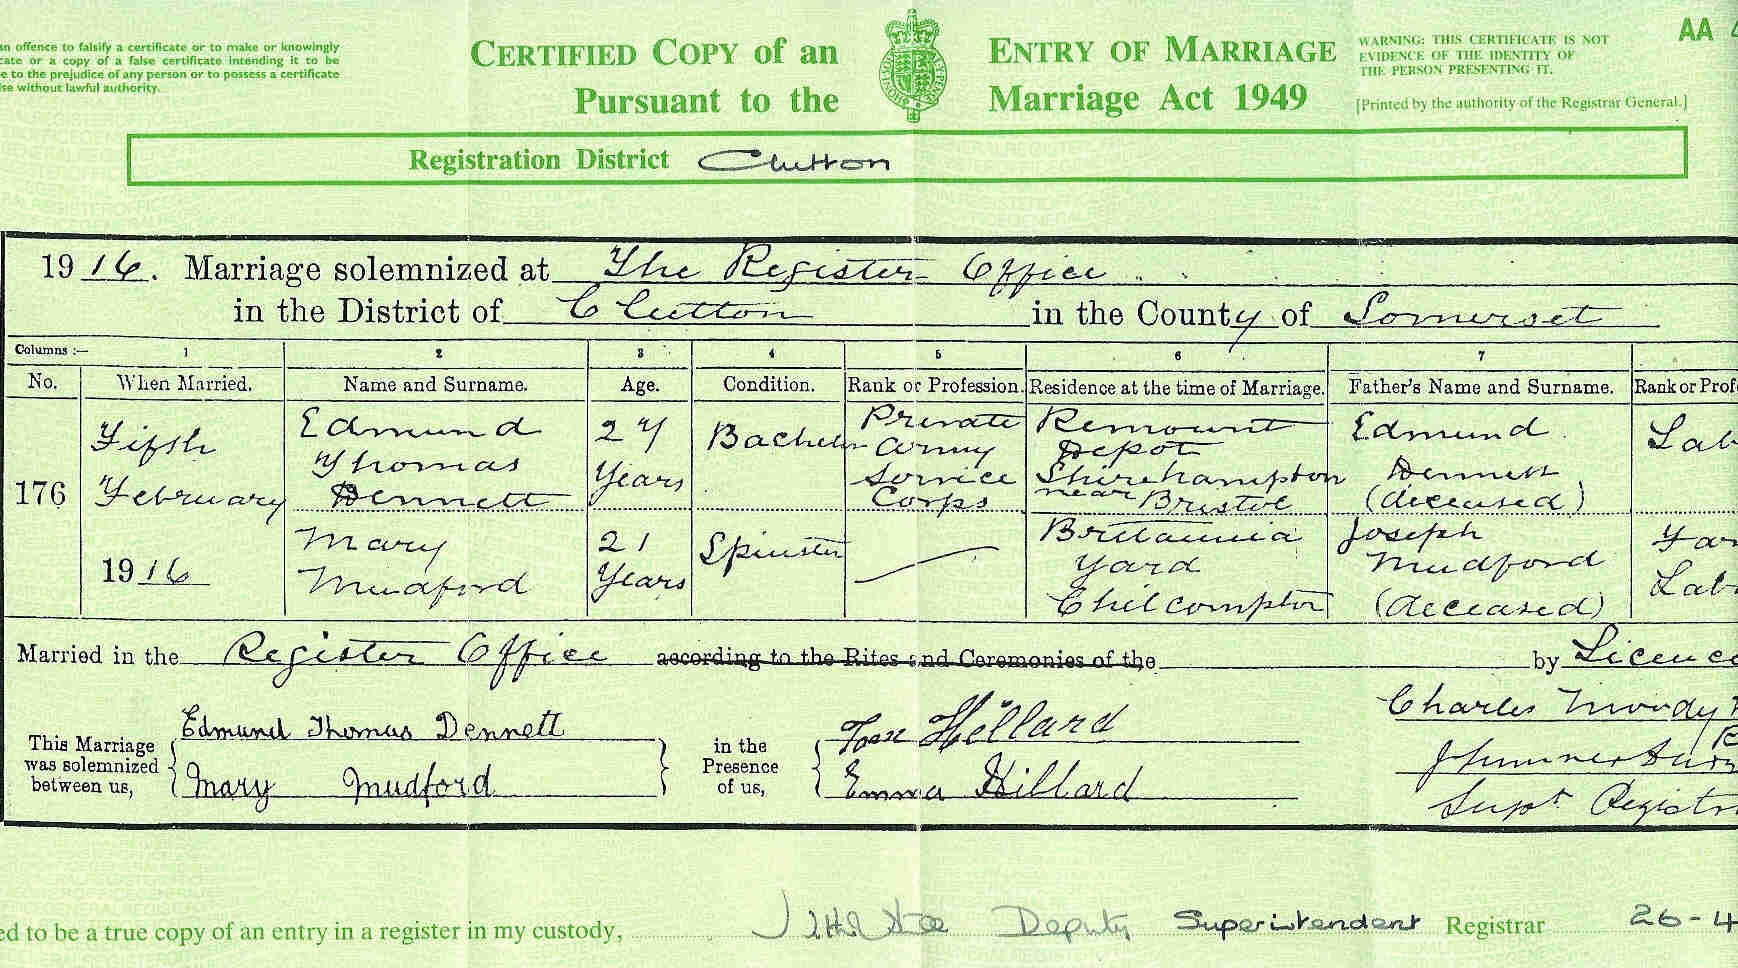 an offence to falsify a certificate or to make or knowingly
cate or a copy of a false certificate intending it to be
e to the prejudice of any person or to possess a certificate
se without lawful authority.
CERTIFIED COPY of an ENTRY OF MARRIAGE
Pursuant to the Marriage Act 1949
WARNING: THIS CERTIFICATE IS NOT
EVIDENCE OF THE IDENTITY OF
THE PERSON PRESENTING IT.
AA
[Printed by the authority of the Registrar General.]
Registration District Clutton
1916. Marriage solemnized at The Register Office
in the District of Clutton in the County of Somerset
Columns :— 1 2 3 4 5 6 7
No. When Married. Name and Surname. Age. Condition. Rank or Profession. Residence at the time of Marriage. Father's Name and Surname. Rank or Prof
176
Fifth
February
1916
Edmund
Thomas
Dennett
27
Years
Bachelor
Private
Army
Service
Corps
Remount
Depot
Shirehampton
near Bristol
Edmund
Dennett
(deceased)
Lab
Mary
Mudford
21
Years
Spinster
Britannia
Yard
Chilcompton
Joseph
Mudford
(deceased)
Far
Lab
Married in the Register Office according to the Rites and Ceremonies of the by Licence
This Marriage
was solemnized
between us,
Edmund Thomas Dennett
Mary Mudford
in the
Presence
of us,
Hillard
Emma Hillard
Charles Moody
Supt Registr
ed to be a true copy of an entry in a register in my custody, Deputy Superintendent Registrar 26-4